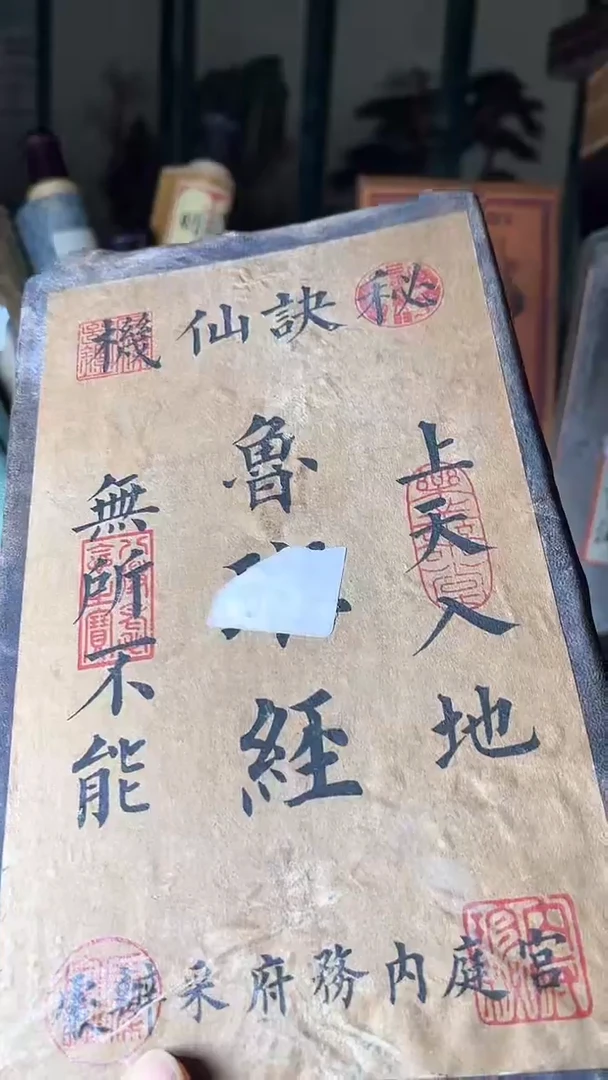 秘訣仙機
上天入地
魯 經
無所不能
宮庭内務府采